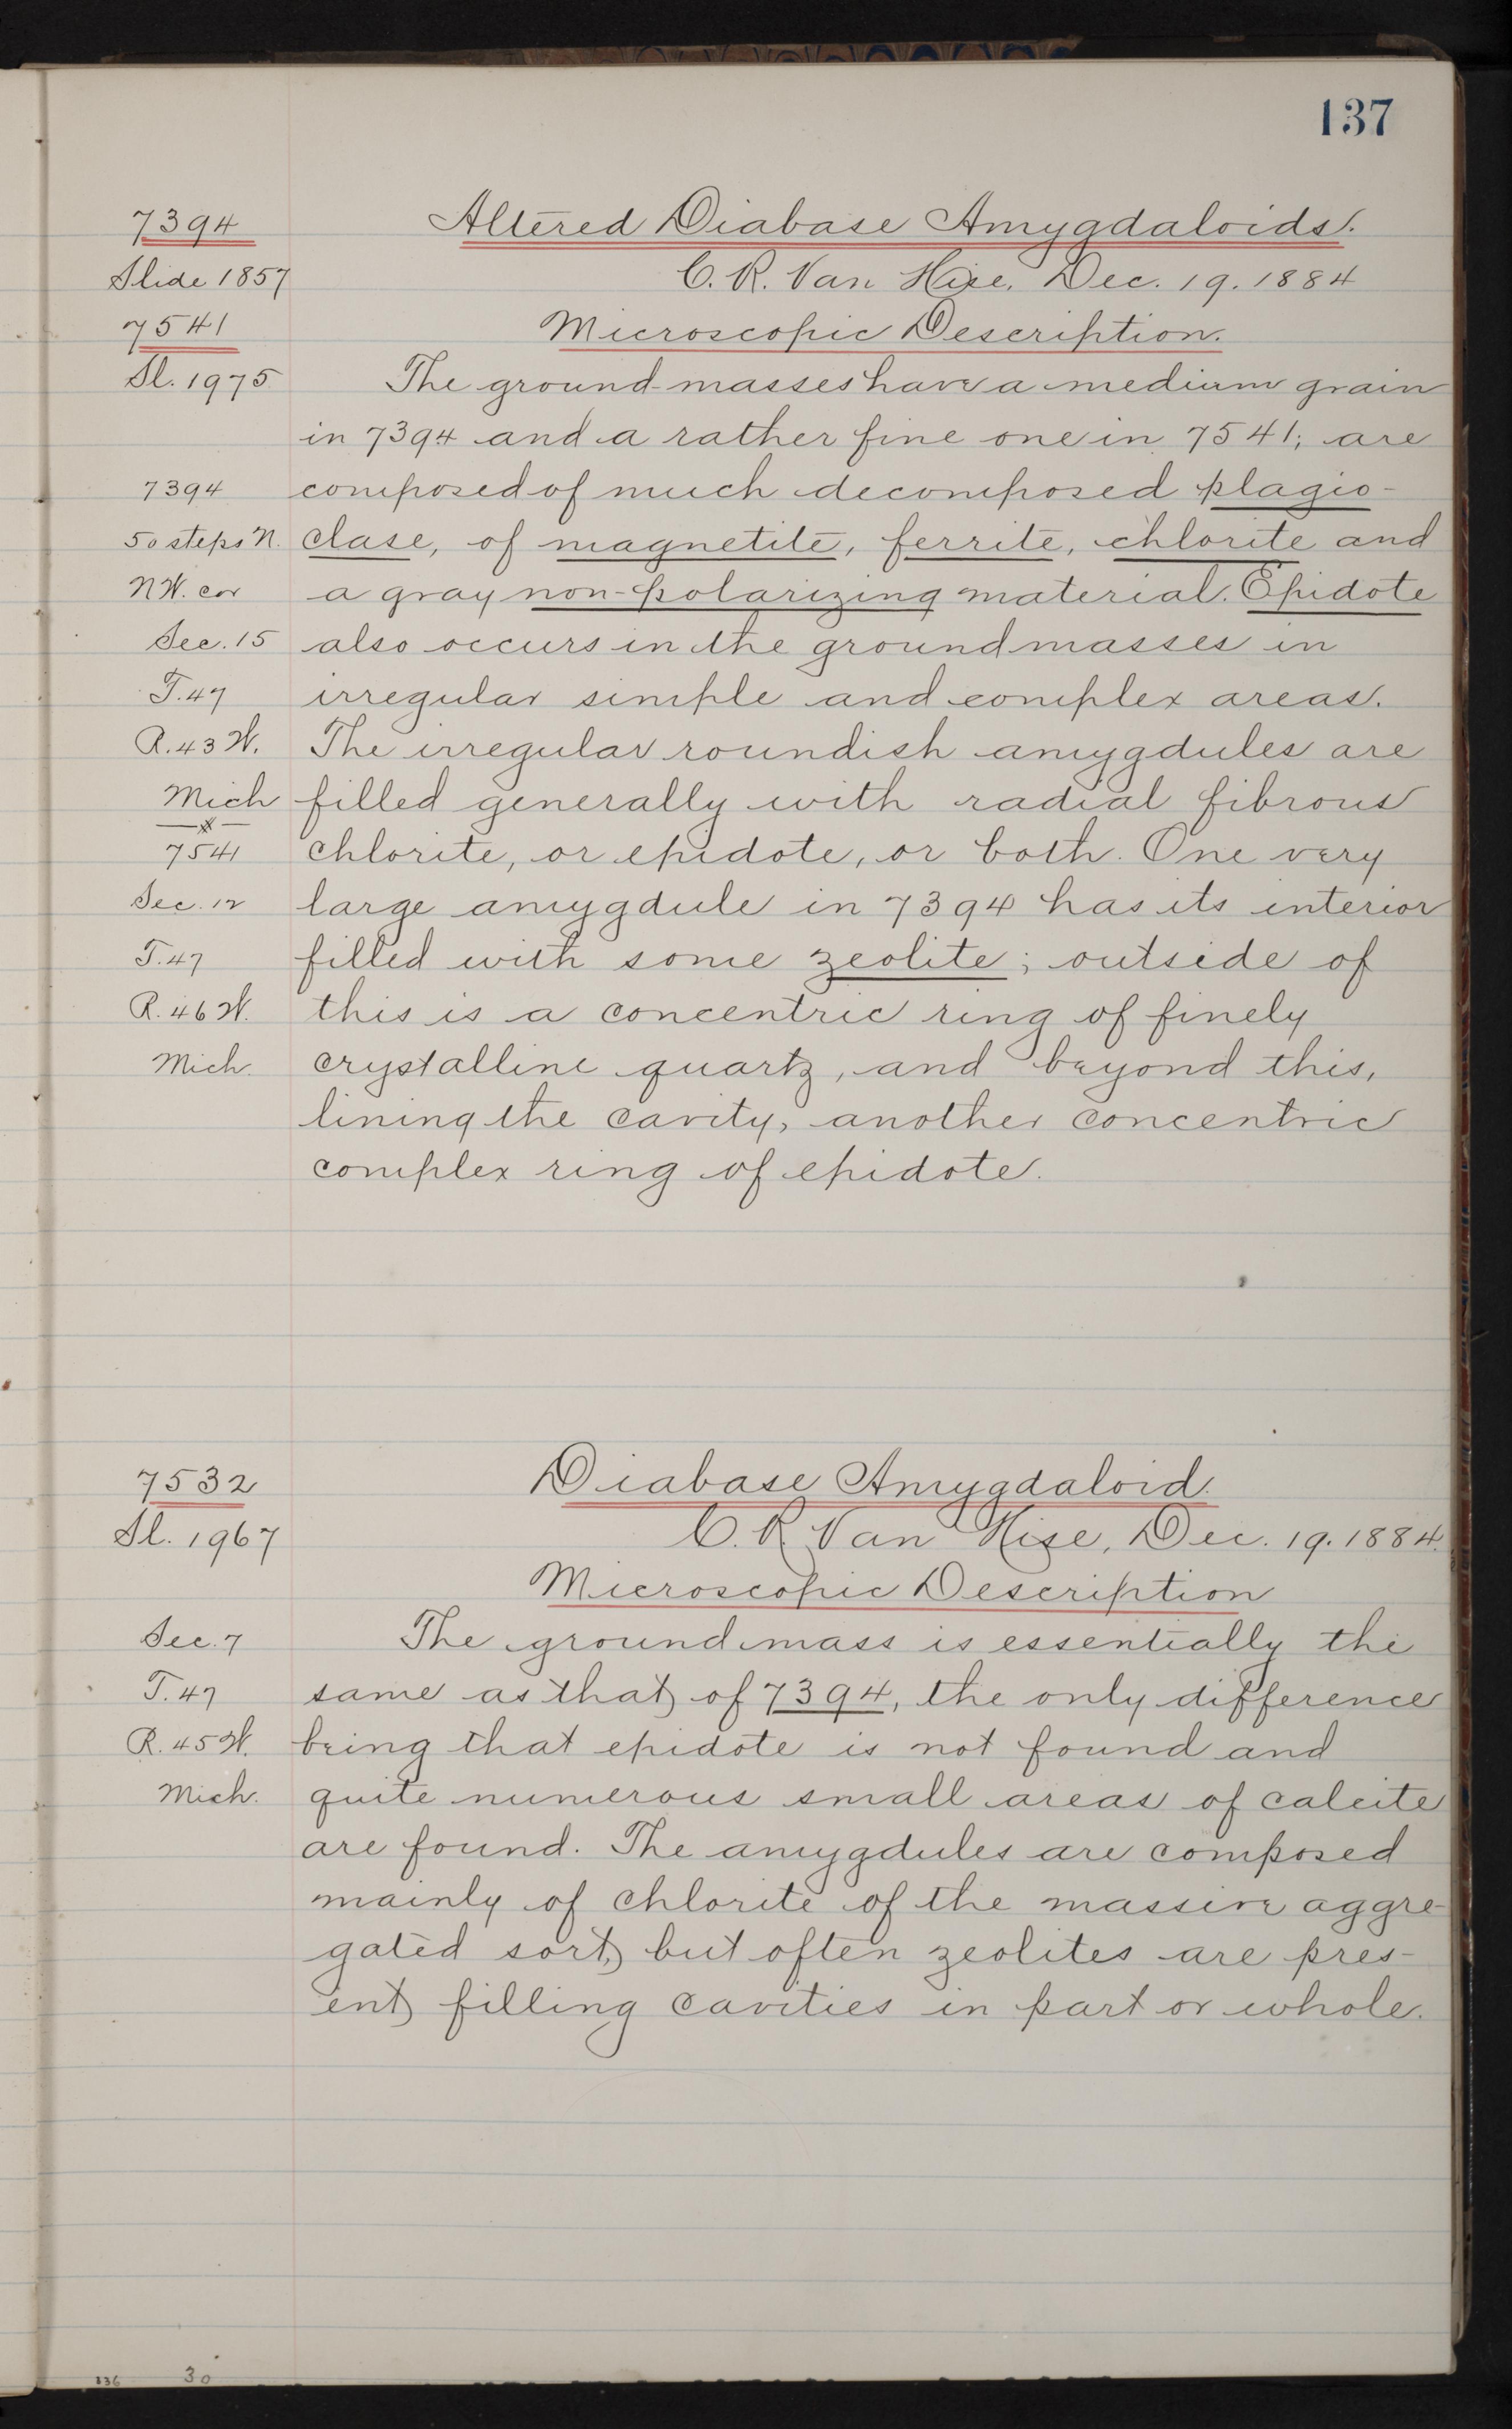 137
7394 Altered Diabase Amygdaloids.
Slide 1857 C. R. Van Hise, Dec. 19. 1884
7541 Microscopic Description.
Sl. 1975 The ground-masses have a medium grain
in 7394 and a rather fine one in 7541; are
7394 composed of much decomposed plagio-
50 steps N. clase, of magnetite, ferrite, chlorite and
N.W. cor a gray non-polarizing material. Epidote
Sec. 15 also occurs in the groundmasses in
T. 47 irregular simple and complex areas.
R. 43 W. The irregular roundish amygdules are
Mich filled generally with radial fibrous
7541 chlorite, or epidote, or both. One very
Sec. 12 large amygdule in 7394 has its interior
T. 47 filled with some zeolite; outside of
R. 46 W. this is a concentric ring of finely
Mich. crystalline quartz, and beyond this,
lining the cavity, another concentric
complex ring of epidote.
7532 Diabase Amygdaloid.
Sl. 1967 C. R. Van Hise, Dec. 19. 1884.
Microscopic Description
Sec. 7 The groundmass is essentially the
T. 47 same as that of 7394, the only difference
R. 45 W. being that epidote is not found and
Mich. quite numerous small areas of calcite
are found. The amygdules are composed
mainly of chlorite of the massive aggre-
gated sort, but often zeolites are pres-
ent filling cavities in part or whole.
136 30